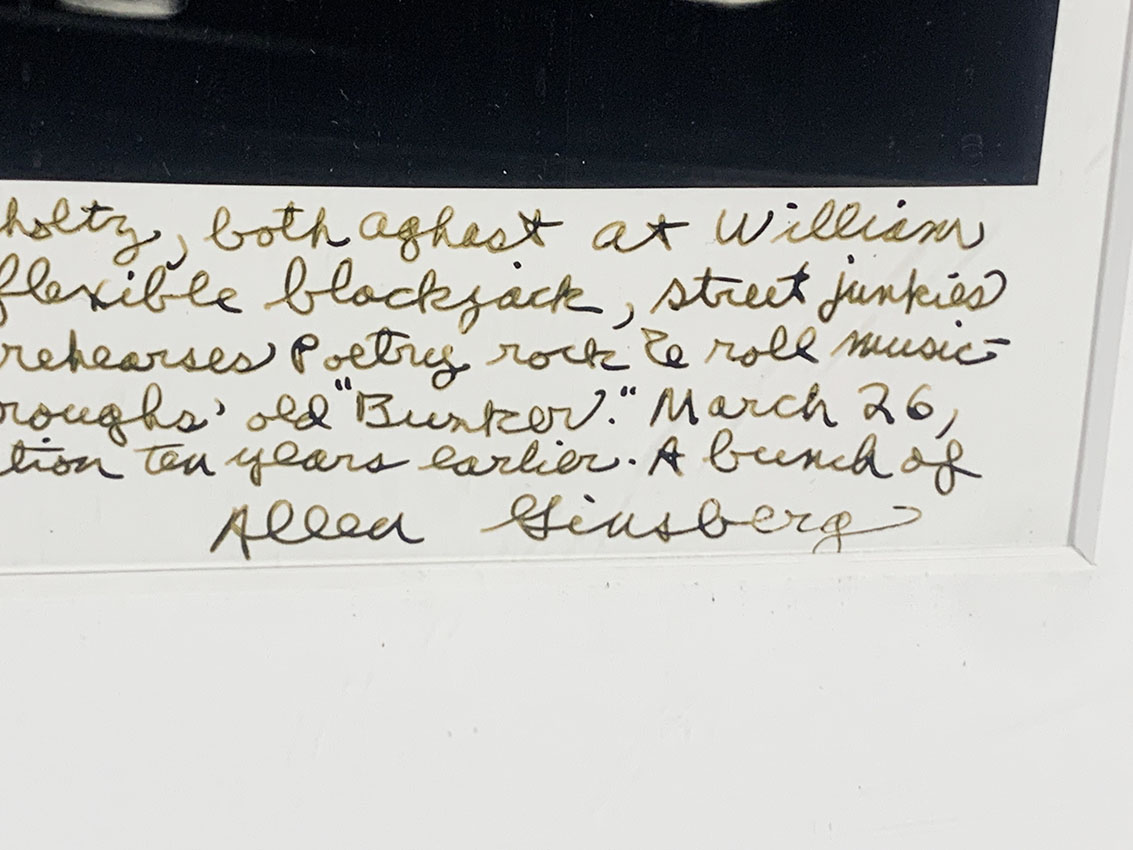 holtz, both aghast at William
flexible blackjack, street junkies
rehearses Poetry rock & roll music
roughs' old "Bunker." March 26,
tion ten years earlier. A bunch of
Allen Ginsberg